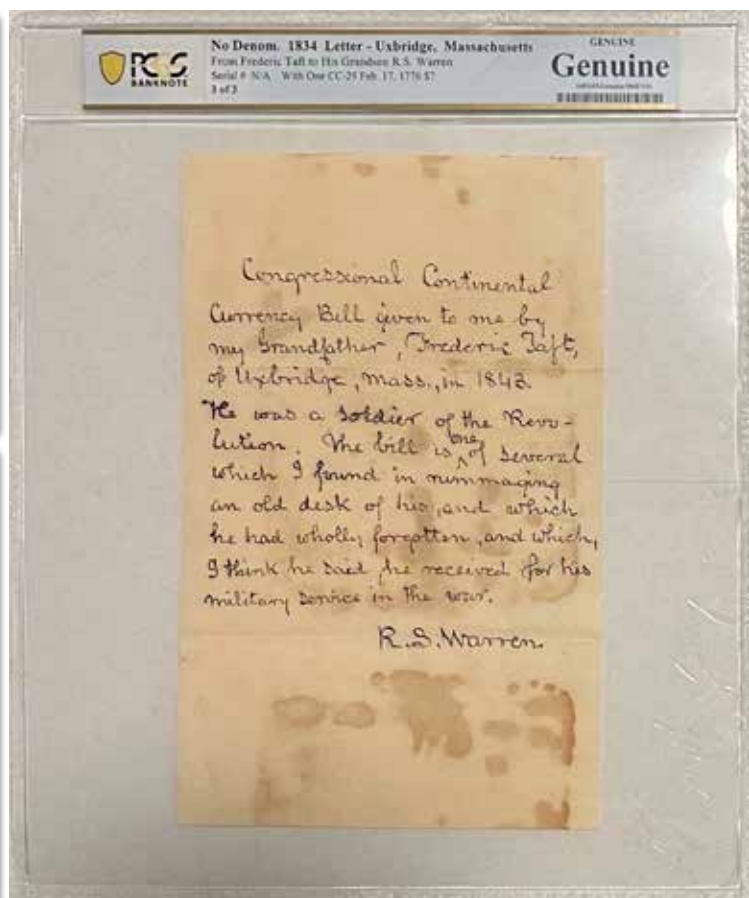 PCGS
BANKNOTE
No Denom. 1834 Letter - Uxbridge, Massachusetts
From Frederic Taft to His Grandson R.S. Warren
Serial # N/A With One CC-29 Feb. 17, 1776 $7
3 of 3
GENUINE
Genuine
Congressional Continental
Currency Bill given to me by
my Grandfather, Frederic Taft,
of Uxbridge, Mass., in 1842.
He was a soldier of the Revo-
lution. The bill is one of several
which I found in rummaging
an old desk of his, and which
he had wholly forgotten, and which,
I think he said, he received for his
military service in the war.
R.S. Warren.